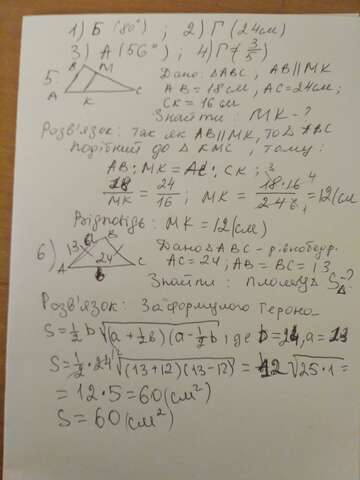 1) Б (80°) ; 2) Г (24см)
3) А (56°) ; 4) Г (3/5)
5. В М А К С
Дано: △ABC, AB∥MK
AB = 18см, AC = 24см;
CK = 16см
Знайти: MK - ?
Розв'язок: так як AB∥MK, то △ ABC
подібний до △ KMC, тому:
AB : MK = AC : CK ;
18/MK = 24/16 ; MK = 18·16/24 = 12(см
Відповідь: MK = 12(см)
6) А В С 13 a 24 b
Дано △ABC - рівнобедр.
AC = 24; AB = BC = 13
Знайти: площу S△-?
Розв'язок: За формулою Герона
S = 1/2 b √(a + 1/2 b)(a - 1/2 b), де b = 24, a = 13
S = 1/2 · 24 √(13+12)(13-12) = 12 √25·1 =
= 12·5 = 60(см²)
S = 60(см²)